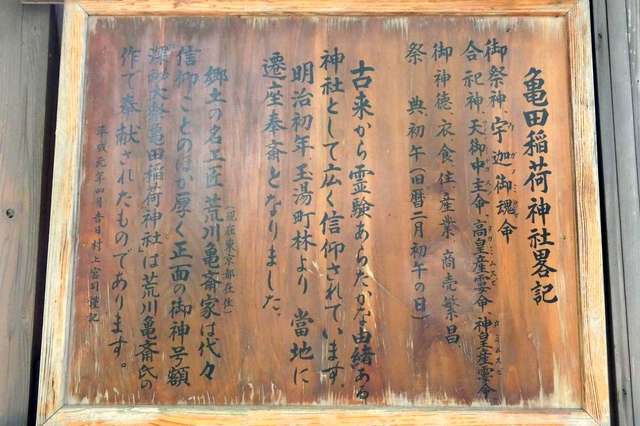 亀田稲荷神社畧記
御祭神、宇迦御魂命
合祀神、天御中主命、高皇産霊命、神皇産霊命
御神徳、衣食住、産業、商売繁昌、
祭　典、初午(旧暦二月初午の日)
古来から霊験あらたかな由緒ある
神社として広く信仰されています。
明治初年玉湯町林より、當地に
遷座奉斎となりました。
(現在東京都在住)
郷土の名工匠荒川亀斎家は代々
信仰ことのほか厚く正面の御神号額
亀田稲荷神社は荒川亀斎氏の
作で奉献されたものであります。
平成元年四月吉日村上宮司謹記